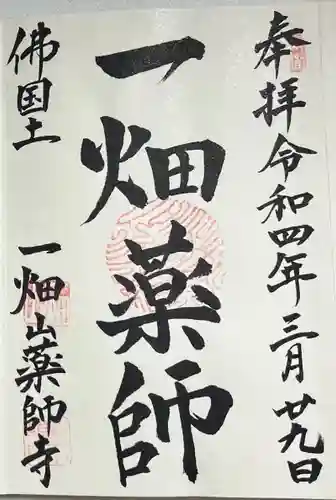 奉拝 令和四年三月廿九日
一畑薬師
佛国土 一畑山薬師寺